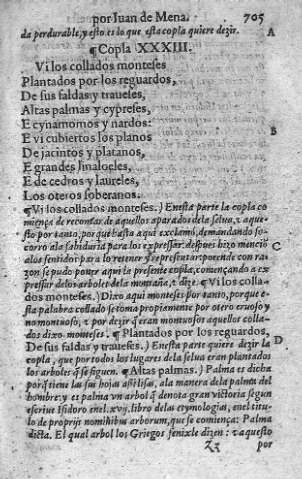 por Iuan de Mena. 705
da perdurable, y esto es lo que esta copla quiere dezir. A
¶ Copla XXXIII.
Vi los collados monteses
Plantados por los reguardos,
De sus faldas y traueses,
Altas palmas y cypreses,
E cynamomos y nardos:
E vi cubiertos los planos B
De jacintos y platanos,
E grandes linaloeles,
E de cedros y laureles,
Los oteros soberanos.
¶ Vi los collados monteses.) Enesta parte la copla co
miença de recontar de aquellos aparados dela selua, y aque
sto por tanto, porque hasta aqui exclamó, demandando so-
corro ala sabiduria para los expressar. despues hizo menció
alos sentidos para lo retener y representar: porende con ra-
zon se pudo poner aqui la presente copla, començando a ex C
pressar delos arboles dela montaña, y dize. ¶ Vi los colla-
dos monteses.) Dixo aqui monteses por tanto, porque e-
sta palabra collado se toma propiamente por otero cruoso y
no montuoso, y por dezir q̃ eran montuosos aquellos colla-
dos dixo monteses. ¶ Plantados por los reguardos,
De sus faldas y traueses.) Enesta parte quiere dezir la D
copla, que por todos los lugares dela selua eran plantados
los arboles q̃ se siguen. ¶ Altas palmas.) Palma es dicha
porq̃ tiene las sus hojas assi lisas, ala manera dela palma del
hombre: y es palma vn arbol q̃ denota gran victoria segun
escriue Isidoro enel .xvij. libro delas etymologias, enel titu-
lo de proprijs nominibus arborum, que se comiença: Palma
dicta. El qual arbol los Griegos fenix le dizen: y aquesto
Zz por